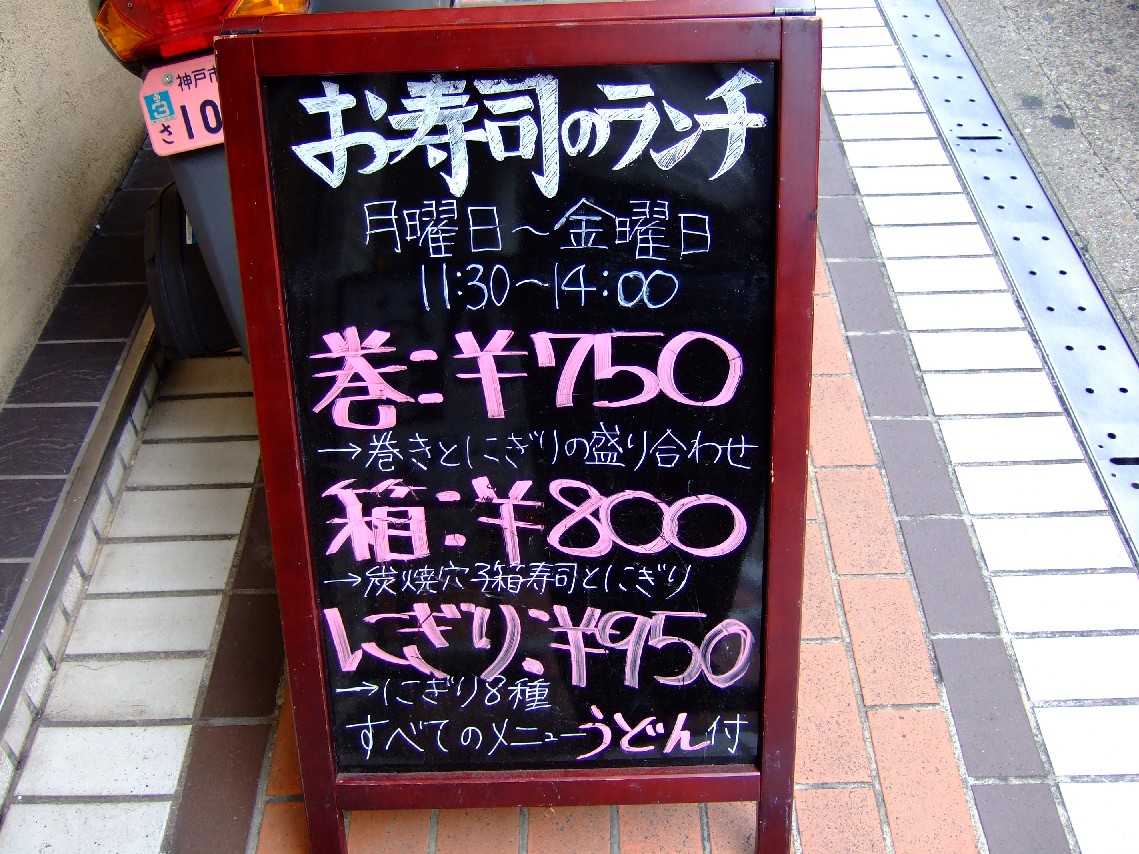 神戸市
さ 10
お寿司のランチ
月曜日～金曜日
11:30～14:00
巻:¥750
→巻きとにぎりの盛り合わせ
箱:¥800
→炭焼穴子箱寿司とにぎり
にぎり:¥950
→にぎり8種
すべてのメニューうどん付